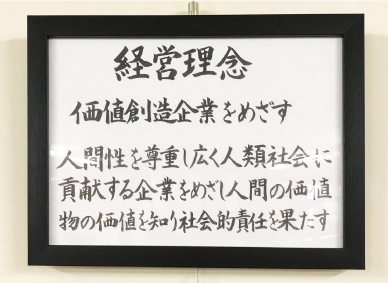 経営理念
価値創造企業をめざす
人間性を尊重し広く人類社会に
貢献する企業をめざし人間の価値
物の価値を知り社会的責任を果たす